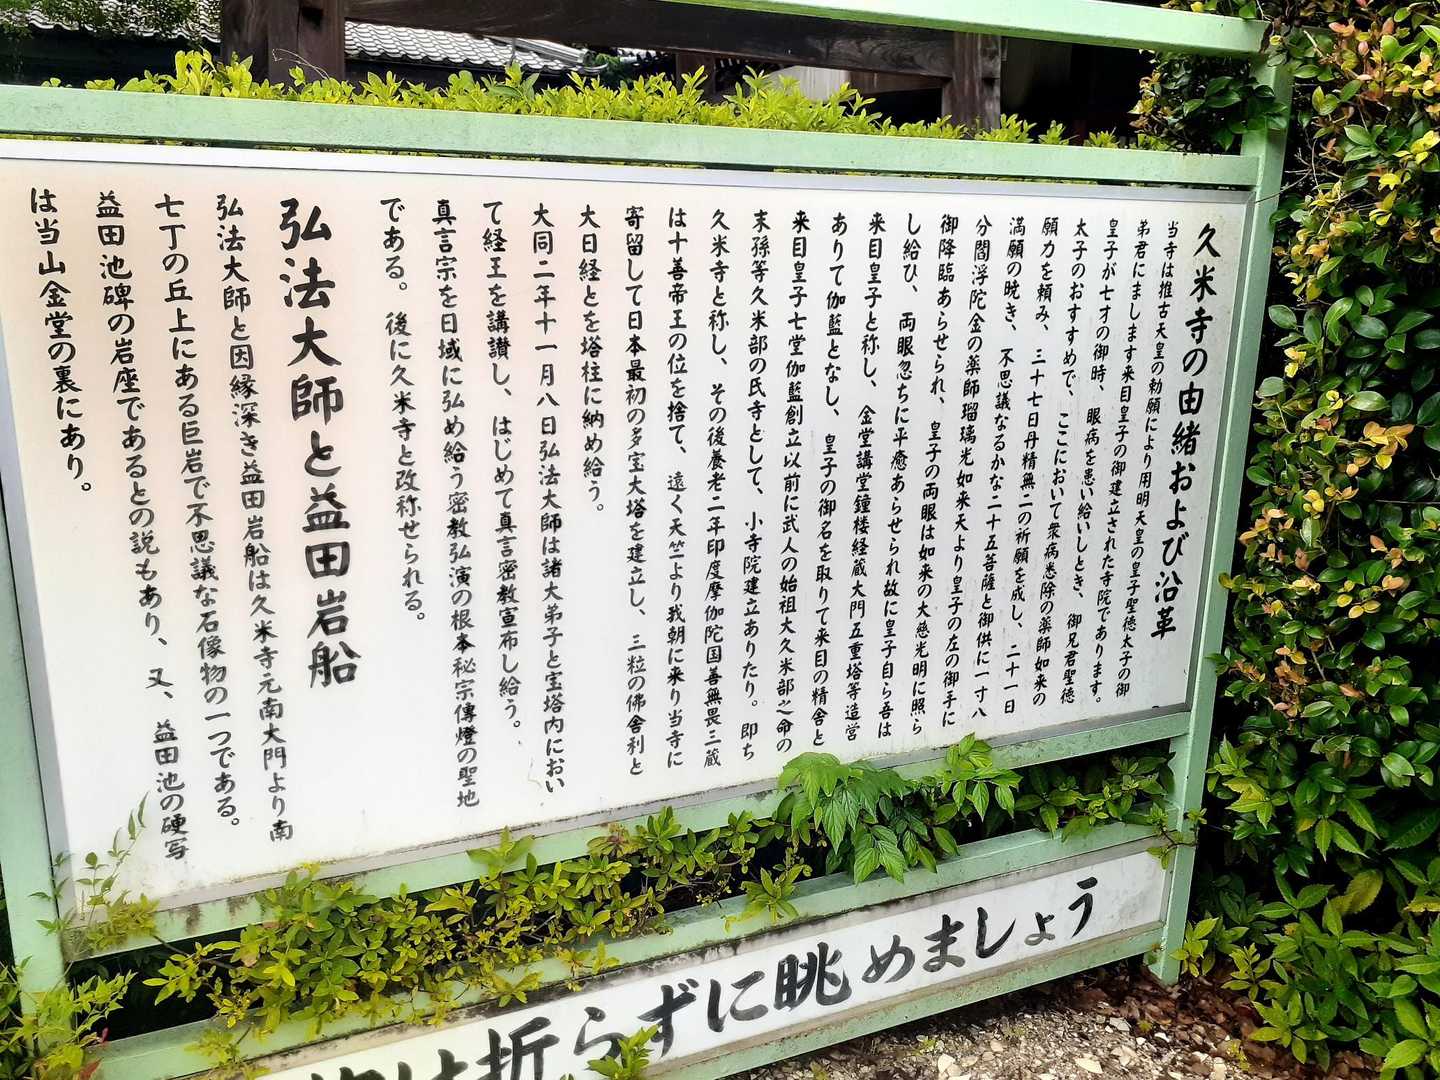 久米寺の由緒および沿革
当寺は推古天皇の勅願により用明天皇の皇子聖徳太子の御
弟君にまします来目皇子の御建立された寺院であります。
皇子が七才の御時、眼病を患い給いしとき、御兄君聖徳
太子のおすすめで、ここにおいて衆病悉除の薬師如来の
願力を頼み、三十七日丹精無二の祈願を成し、二十一日
満願の暁き、不思議なるかな二十五菩薩と御供に一寸八
分閻浮陀金の薬師瑠璃光如来天より皇子の左の御手に
御降臨あらせられ、皇子の両眼は如来の大慈光明に照ら
し給ひ、両眼忽ちに平癒あらせられ故に皇子自ら吾は
来目皇子と称し、金堂講堂鐘楼経蔵大門五重塔等造営
ありて伽藍となし、皇子の御名を取りて来目の精舎と
来目皇子七堂伽藍創立以前に武人の始祖大久米部之命の
末孫等久米部の氏寺として、小寺院建立ありたり。即ち
久米寺と称し、その後養老二年印度摩伽陀国善無畏三蔵
は十善帝王の位を捨て、遠く天竺より我朝に来り当寺に
寄留して日本最初の多宝大塔を建立し、三粒の佛舎利と
大日経とを塔柱に納め給う。
大同二年十一月八日弘法大師は諸大弟子と宝塔内におい
て経王を講讃し、はじめて真言密教宣布し給う。
真言宗を日域に弘め給う密教弘演の根本秘宗傳燈の聖地
である。後に久米寺と改称せられる。
弘法大師と益田岩船
弘法大師と因縁深き益田岩船は久米寺元南大門より南
七丁の丘上にある巨岩で不思議な石像物の一つである。
益田池碑の岩座であるとの説もあり、又、益田池の硬写
は当山金堂の裏にあり。
は折らずに眺めましょう